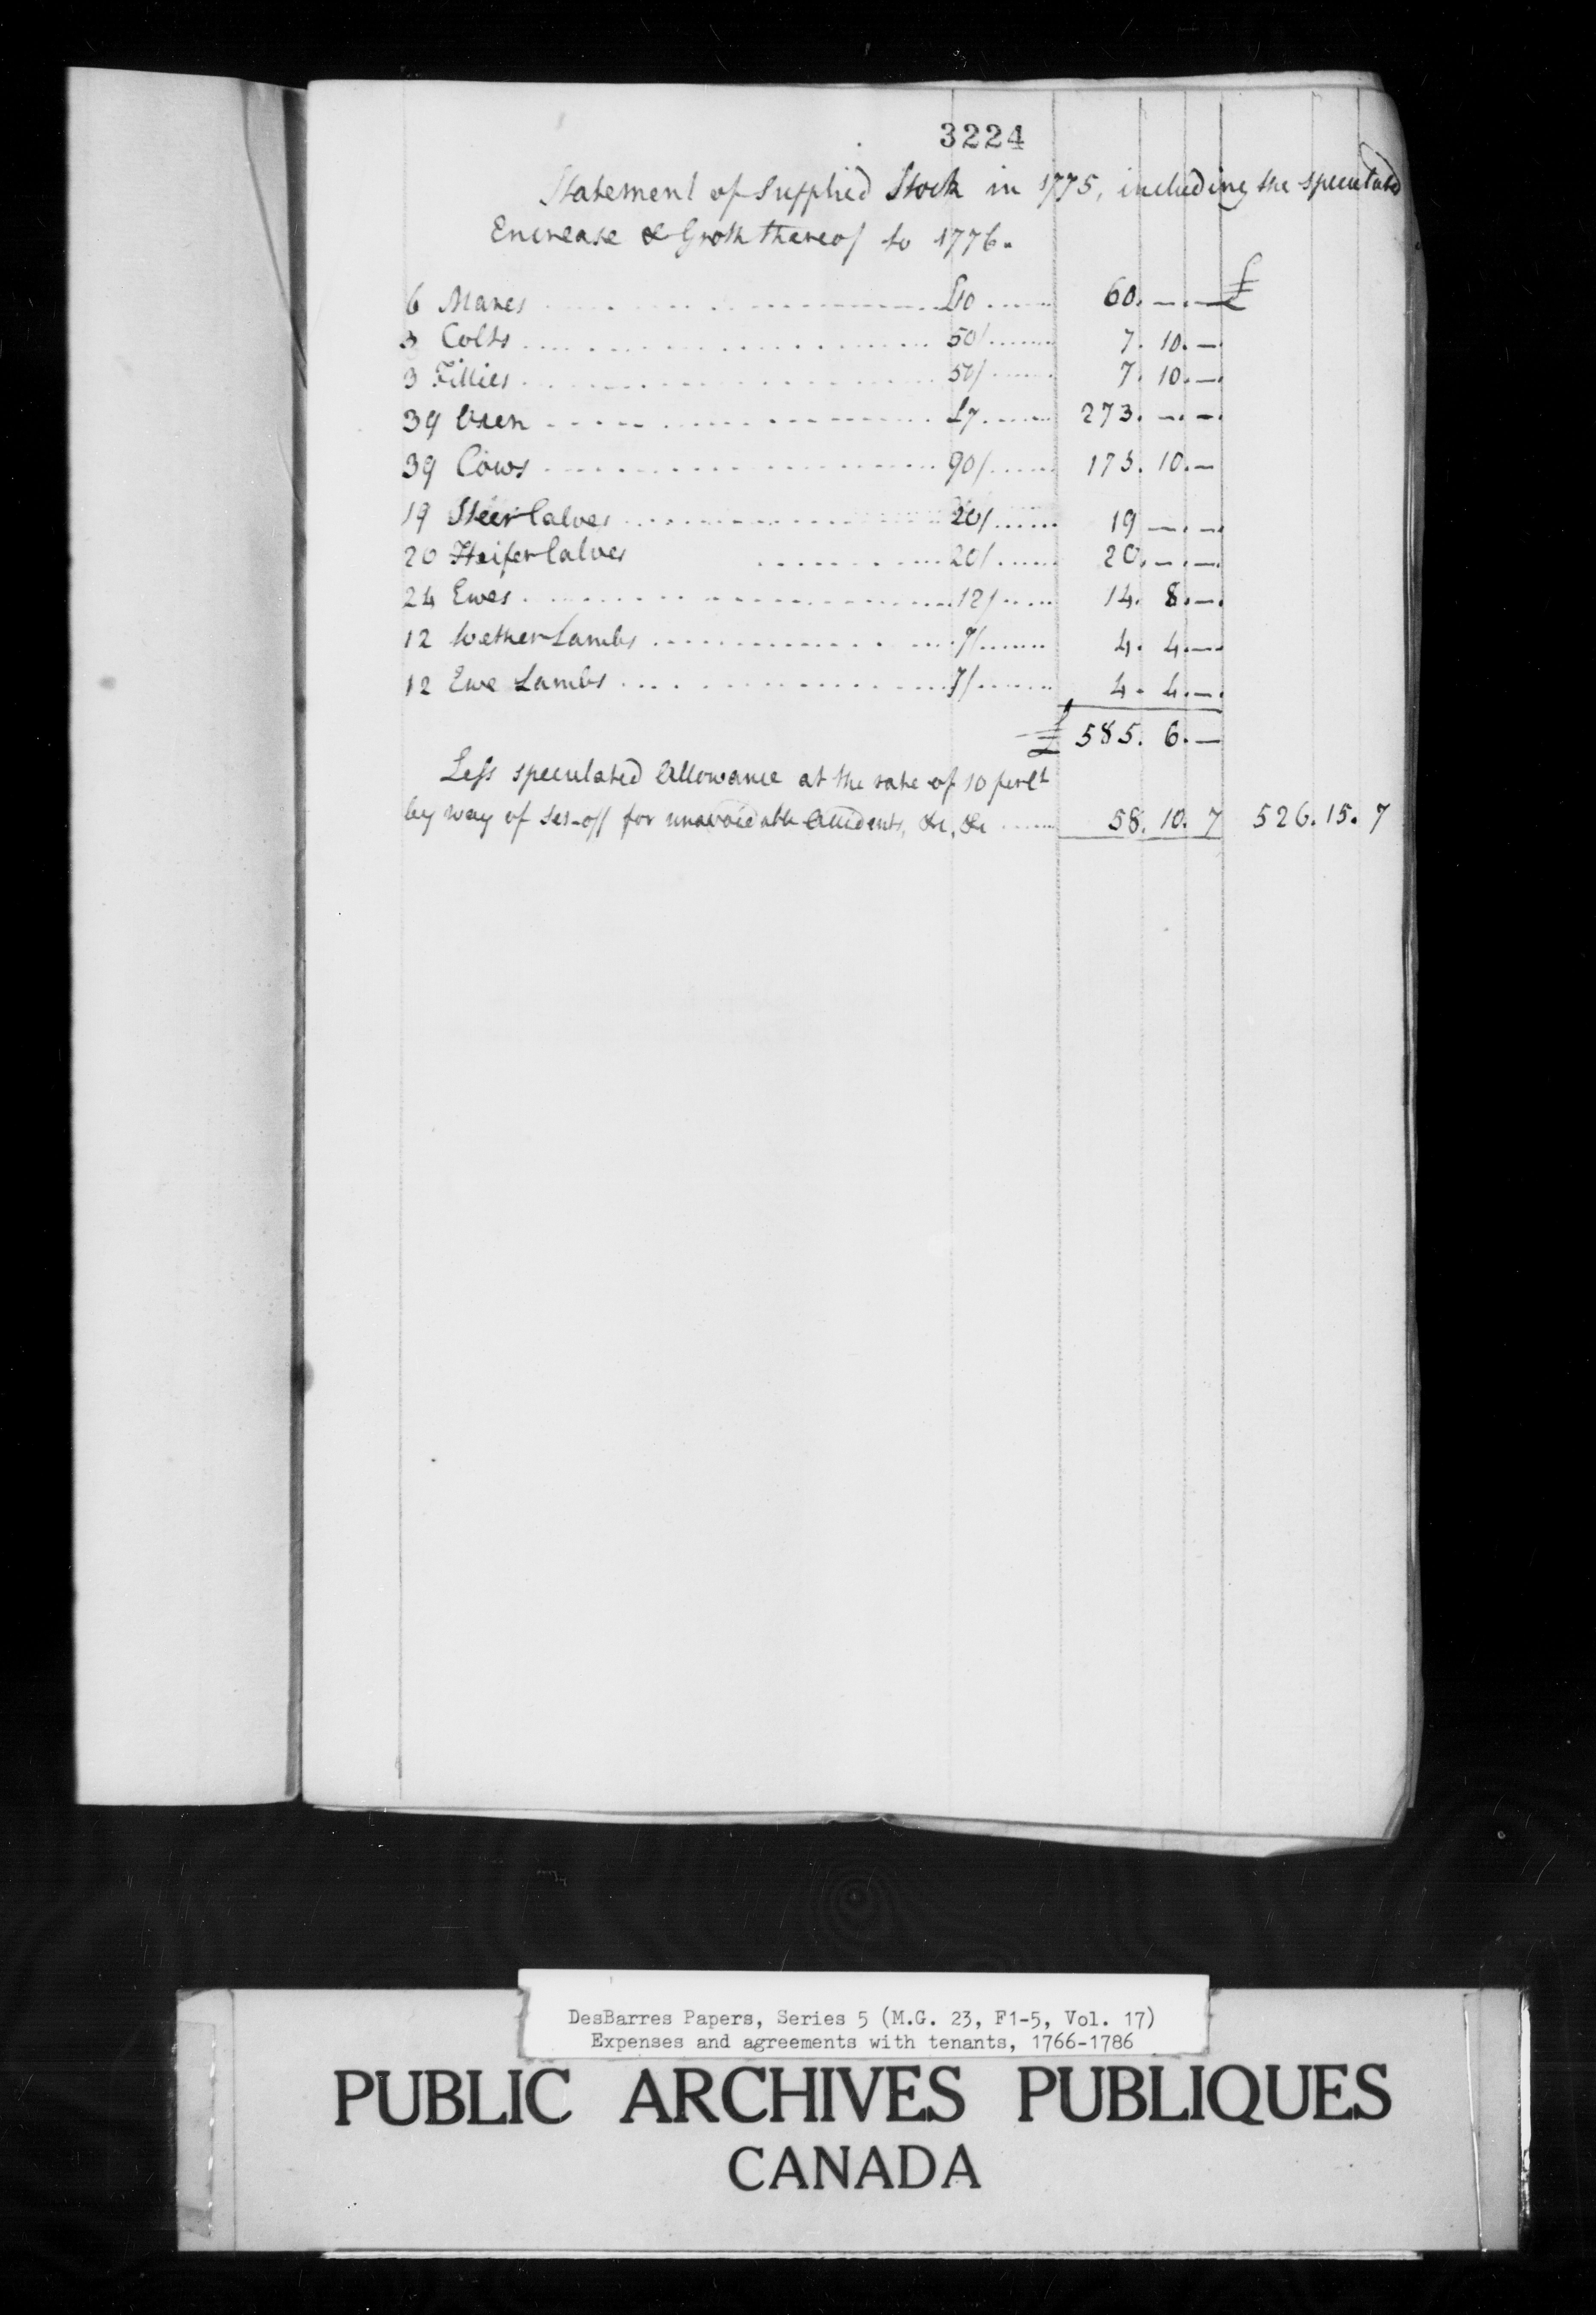 3224
Statement of Supplied Stock in 1775, including the speculated
Encrease & Groth thereof to 1776.
6 Mares £10 60. —. — £
3 Colts 50/ 7. 10. —
3 Fillies 50/ 7. 10. —
39 Oxen £7 273. —. —.
39 Cows 90/ 175. 10. —
19 Steer Calves 20/ 19 —. —.
20 Heifer Calves 20/ 20. —. —.
24 Ewes 12/ 14. 8. —.
12 Wether Lambs 7/ 4. 4. —
12 Ewe Lambs 7/ 4. 4. —.
£ 585. 6. —
Less speculated Allowance at the rate of 10 per Ct
by way of set-off for unavoidable Accidents, &c, &c 58. 10. 7 526. 15. 7
DesBarres Papers, Series 5 (M.G. 23, F1-5, Vol. 17)
Expenses and agreements with tenants, 1766-1786
PUBLIC ARCHIVES PUBLIQUES
CANADA